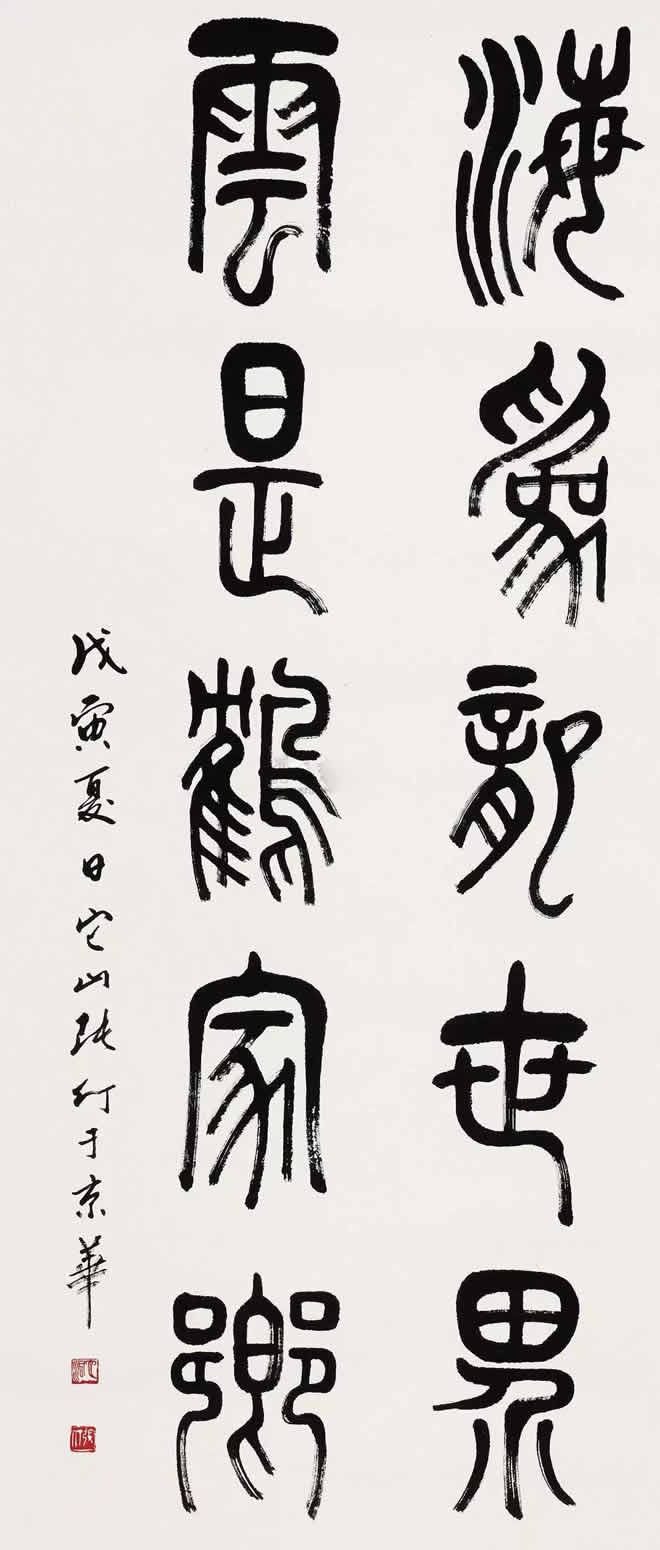 海為龍世界
雲是鶴家鄉
戊寅夏日它山張仃于京華